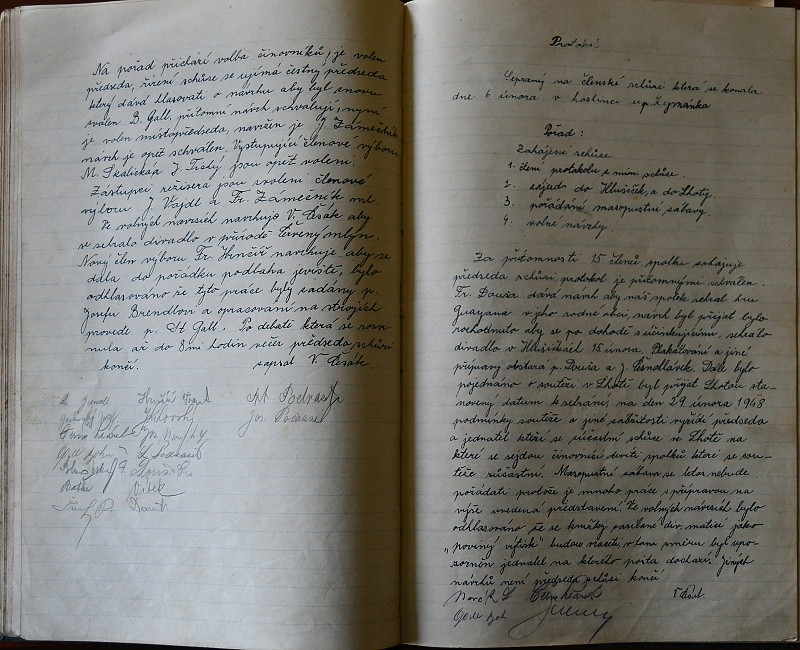 Na pořad přichází volba činovníků, je volen
předseda, řízení schůze se ujímá čestný předseda
který dává hlasovati o návrhu aby byl znovu
zvolen B. Gall, přítomní návrh schvalují, nyní
je volen místopředseda, navržen je J. Zámečník
návrh je opět schválen. Vystupující členové výboru
M. Skalická a J. Tichý jsou opět voleni.
Zástupci režiséra jsou zvoleni členové
výboru, J. Vajdl a Fr. Zámečník ml.
Ve volných návrzích navrhuje V. Česák aby
se sehrálo divadlo v přírodě Červený mlýn.
Nový člen výboru Fr. Hnřčíř navrhuje, aby se
dala do pořádku podlaha jeviště, bylo
odhlasováno že tyto práce byly zadány p.
Josefu Brendlovi a opracování na strojích
provede p. A. Gall. Po debatě která se rozvi
nula až do 8mi hodin večer předseda schůzi
končí. zapsal V. Česák.
Ant. Podrazil
Jos. Podrazil
Protokol
Sepsaný na členské schůzi která se konala
dne 6 února v hostinci u p. Zejmánka
Pořad:
Zahájení schůze
1. čtení protokolu z min. schůze.
2. zájezd do Hlušiček, a do Lhoty.
3. pořádání masopustní zábavy.
4. volné návrhy.
Za přítomnosti 15 členů spolku zahajuje
předseda schůzi, protokol je přítomnými schválen.
Fr. Douša dává návrh aby náš spolek sehrál hru
Guayana v jeho rodné obci, návrh byl přijat bylo
rozhodnuto aby se po dohodě s účinkujícími, sehrálo
divadlo v Hlušičkách 15 února. Plakátování a jiné
přípravy obstará p. Douša a J. Čéšndlárek. Dále bylo
pojednáno o soutěži v Lhotě byl přijat Lhotou sta-
novený datum k sehrání, na den 29 února 1948
podmínky soutěže a jiné záležitosti vyřídí předseda
a jednatel kteří se zúčastní schůze ve Lhotě na
které se sejdou činovníci devíti spolků které se sou-
těže zúčastní. Masopustní zábava se letos nebude
pořádati protože je mnoho práce s přípravou na
výše uvedená představení. Ve volných návrzích bylo
odhlasováno že se knížky zasílané div. maticí jako
„povinný výtisk" budou vraceti, v tom směru byl upo-
zorněn jednatel na kterého pošta dochází. Jiných
návrhů není předseda schůzi končí